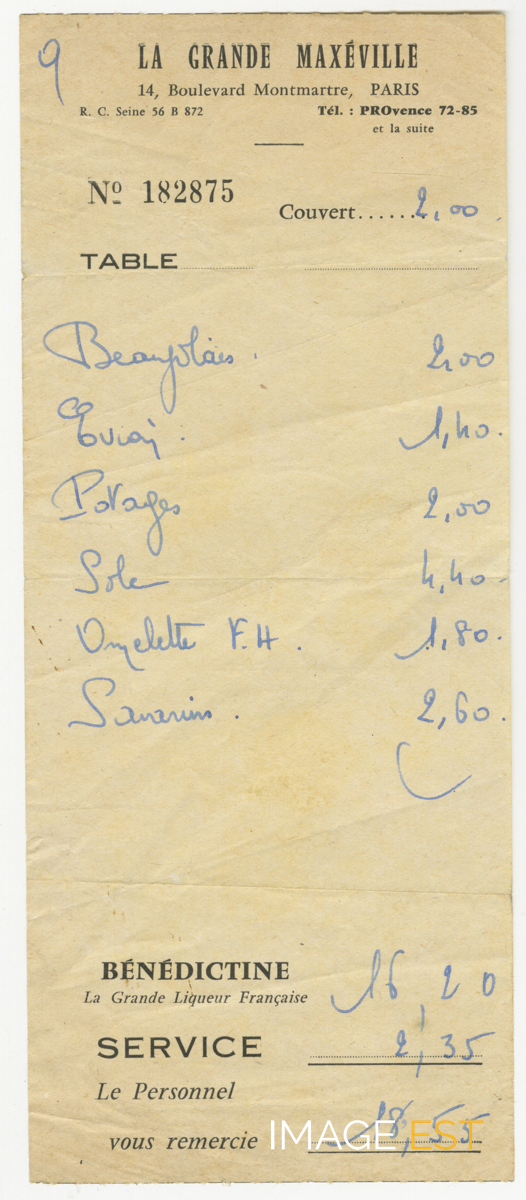 9
LA GRANDE MAXÉVILLE
14, Boulevard Montmartre, PARIS
R. C. Seine 56 B 872 Tél. : PROvence 72-85
et la suite
Nº 182875
Couvert....... 2,00
TABLE
Beaujolais. 2,00
Evian. 1,40.
Potages 2,00
Sole 4,40
Omelette F.H. 1,80.
Savarins. 2,60.
BÉNÉDICTINE 16,20
La Grande Liqueur Française
SERVICE 2,35
Le Personnel
vous remercie 18,55
IMAGE'EST